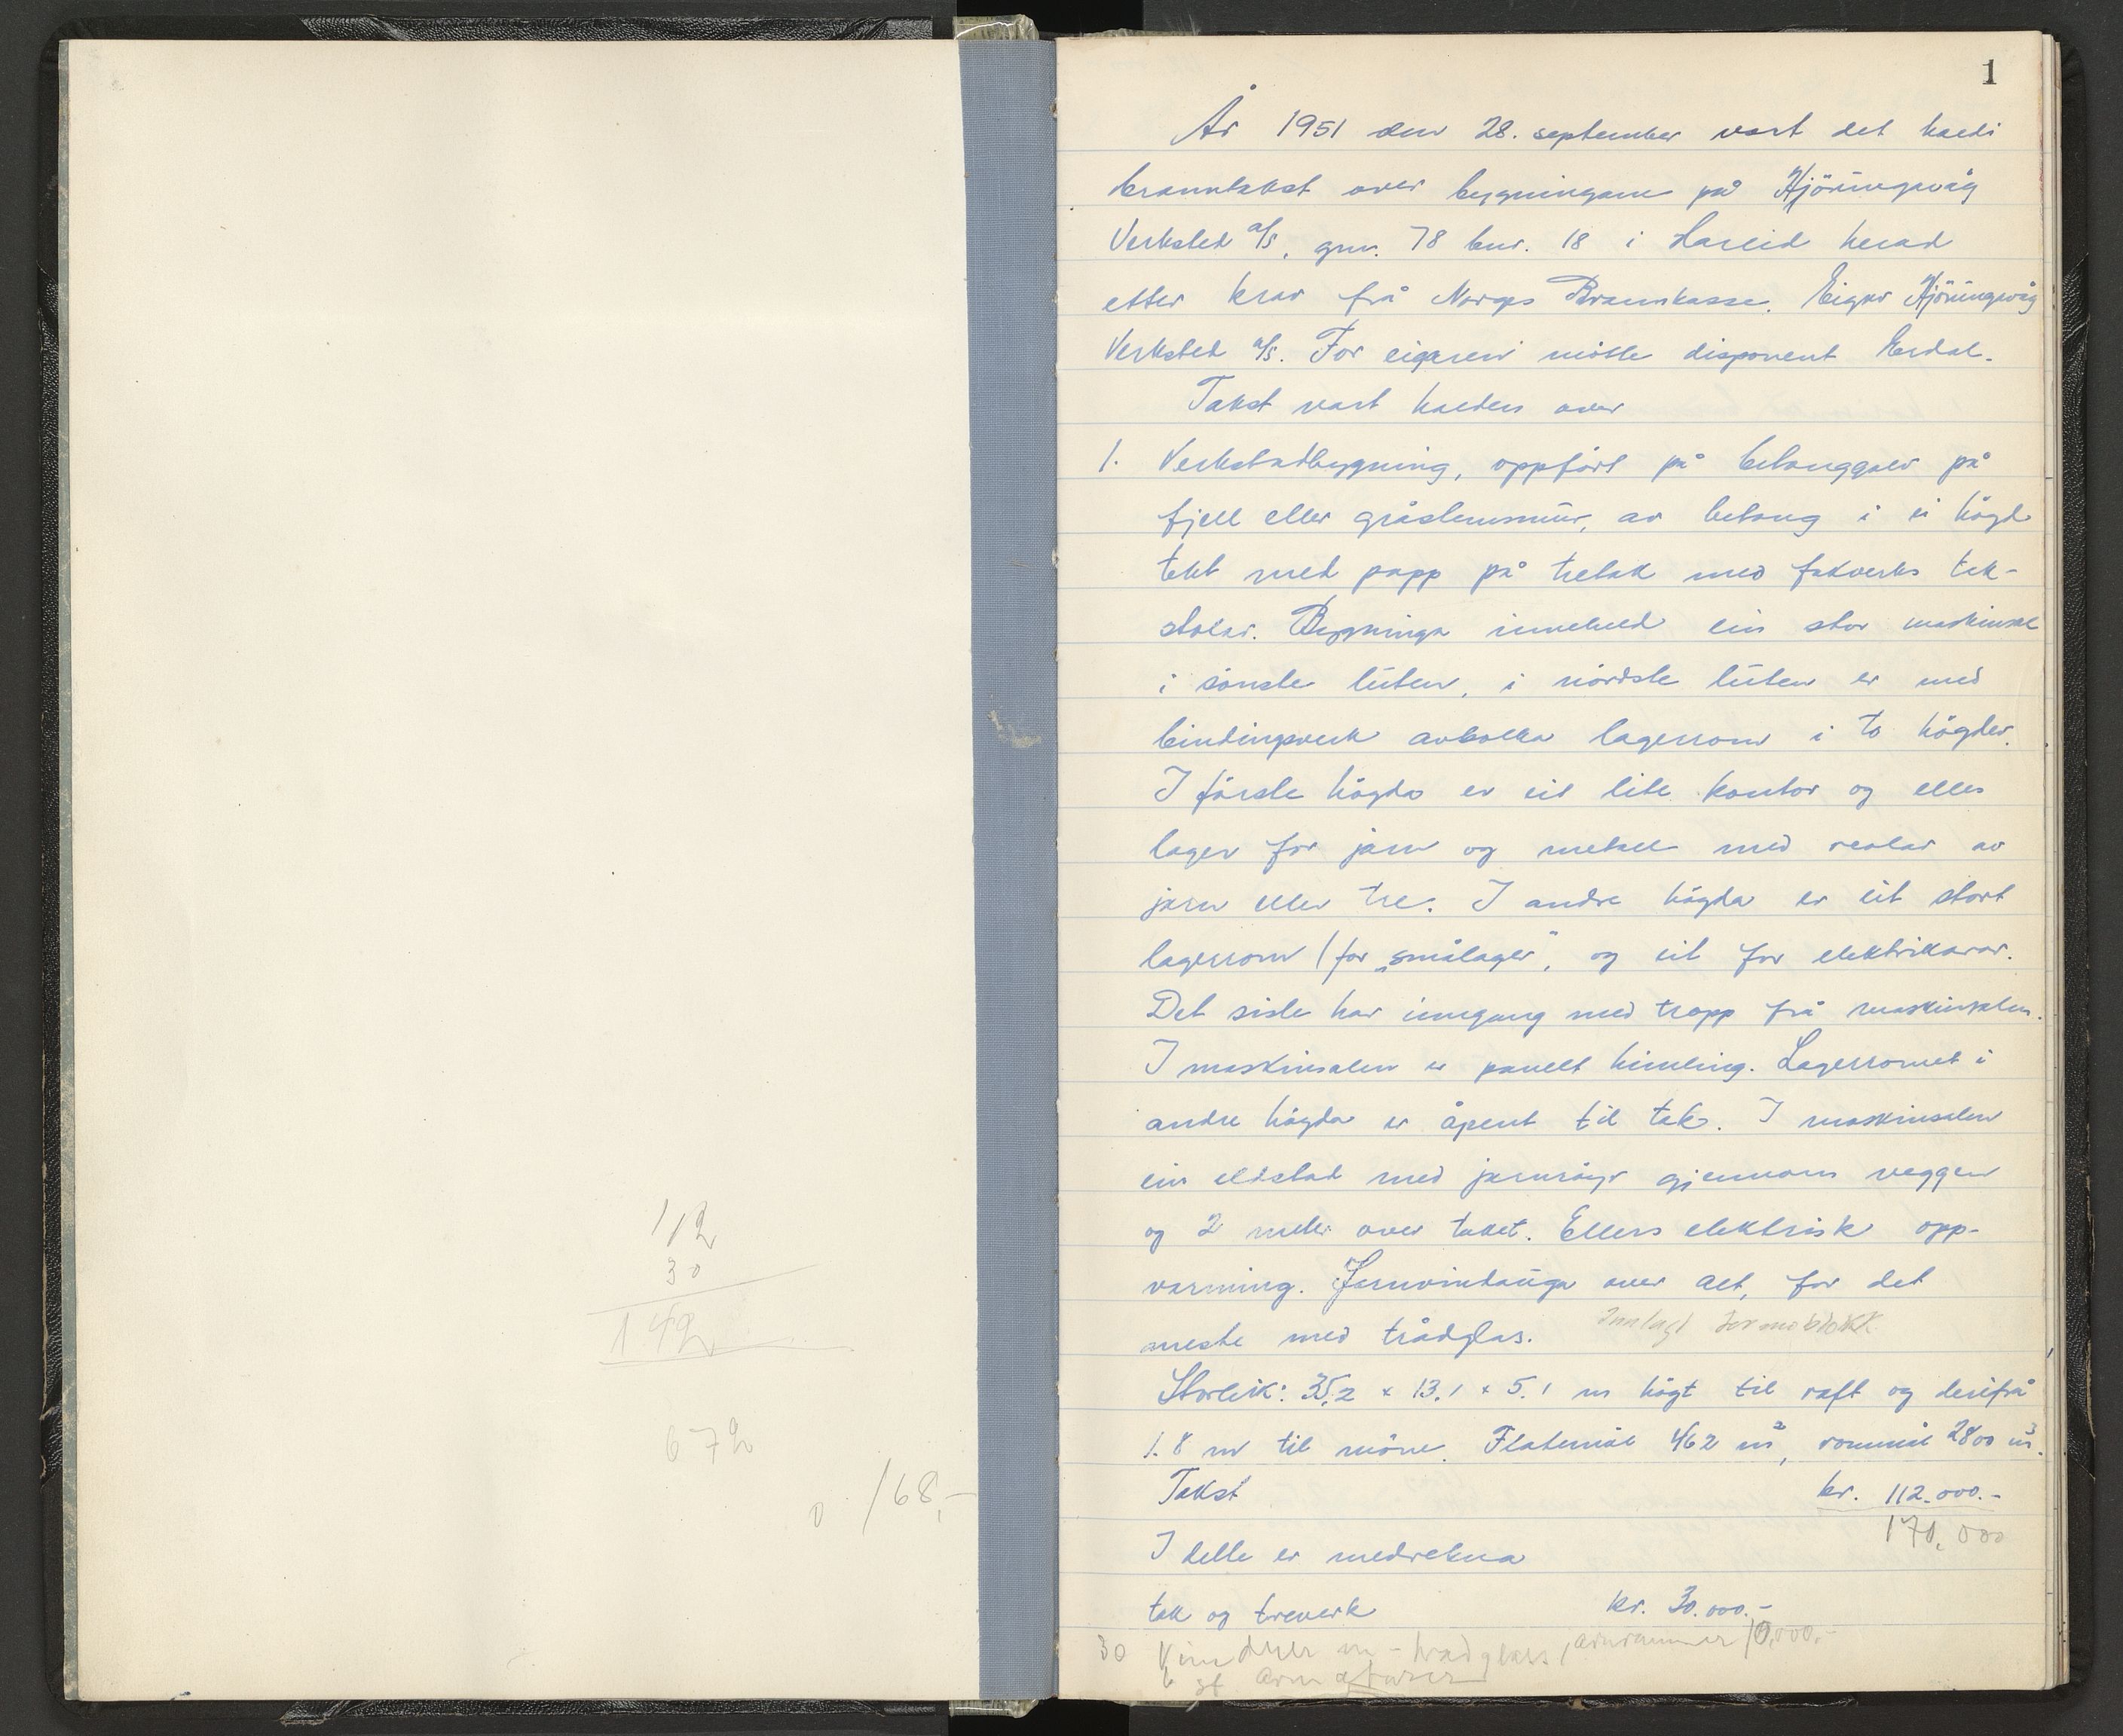 112
30
142
672
0 168,-
1
År 1951 den 28. september vart det haldi
branntakst over bygningane på Hjörungavåg
Verksted a/s, gnr. 78 bnr. 18 i Hareid herad
etter krav frå Norges Brannkasse. Eigar Hjörungavåg
Verksted a/s. For eigaren mötte disponent Erdal.
Takst vart halden over
1. Verkstadbygning, oppfört på betonggolv på
fjell eller gråsteinsmur, av betong i ei högd
tekt med papp på tretak med fakverks tak-
stolar. Bygninga inneheld ein stor maskinsal
i sönste luten, i nordste luten er med
bindingsverk avbolka lagerrom i to högder.
I förste högda er eit lite kontor og elles
lager for jarn og metall med reolar av
jarn eller tre. I andre högda er eit stort
lagerrom (for „smålager", og eit for elektrikarar.
Det siste har inngang med tropp frå maskinsalen.
I maskinsalen er panelt himling. Lagerromet i
andre högda er åpent til tak. I maskinsalen
ein eldstad med jarnröyr gjennom veggen
og 2 meter over taket. Ellers elektrisk opp-
varming. Jarnvindauga over alt, for det
meste med trådglas. Innlagt termoblokk
Storleik: 35,2 x 13,1 x 5.1 m högt til raft og derifrå
1.8 m til möne. Flatemål 462 m², rommål 2800 m³.
Takst kr. 112.000.-
170.000
I dette er medrekna
tak og treverk kr. 30.000.-
30 Vinduer m - trådglass, jarnrammer 10,000.-
6 st armaturer